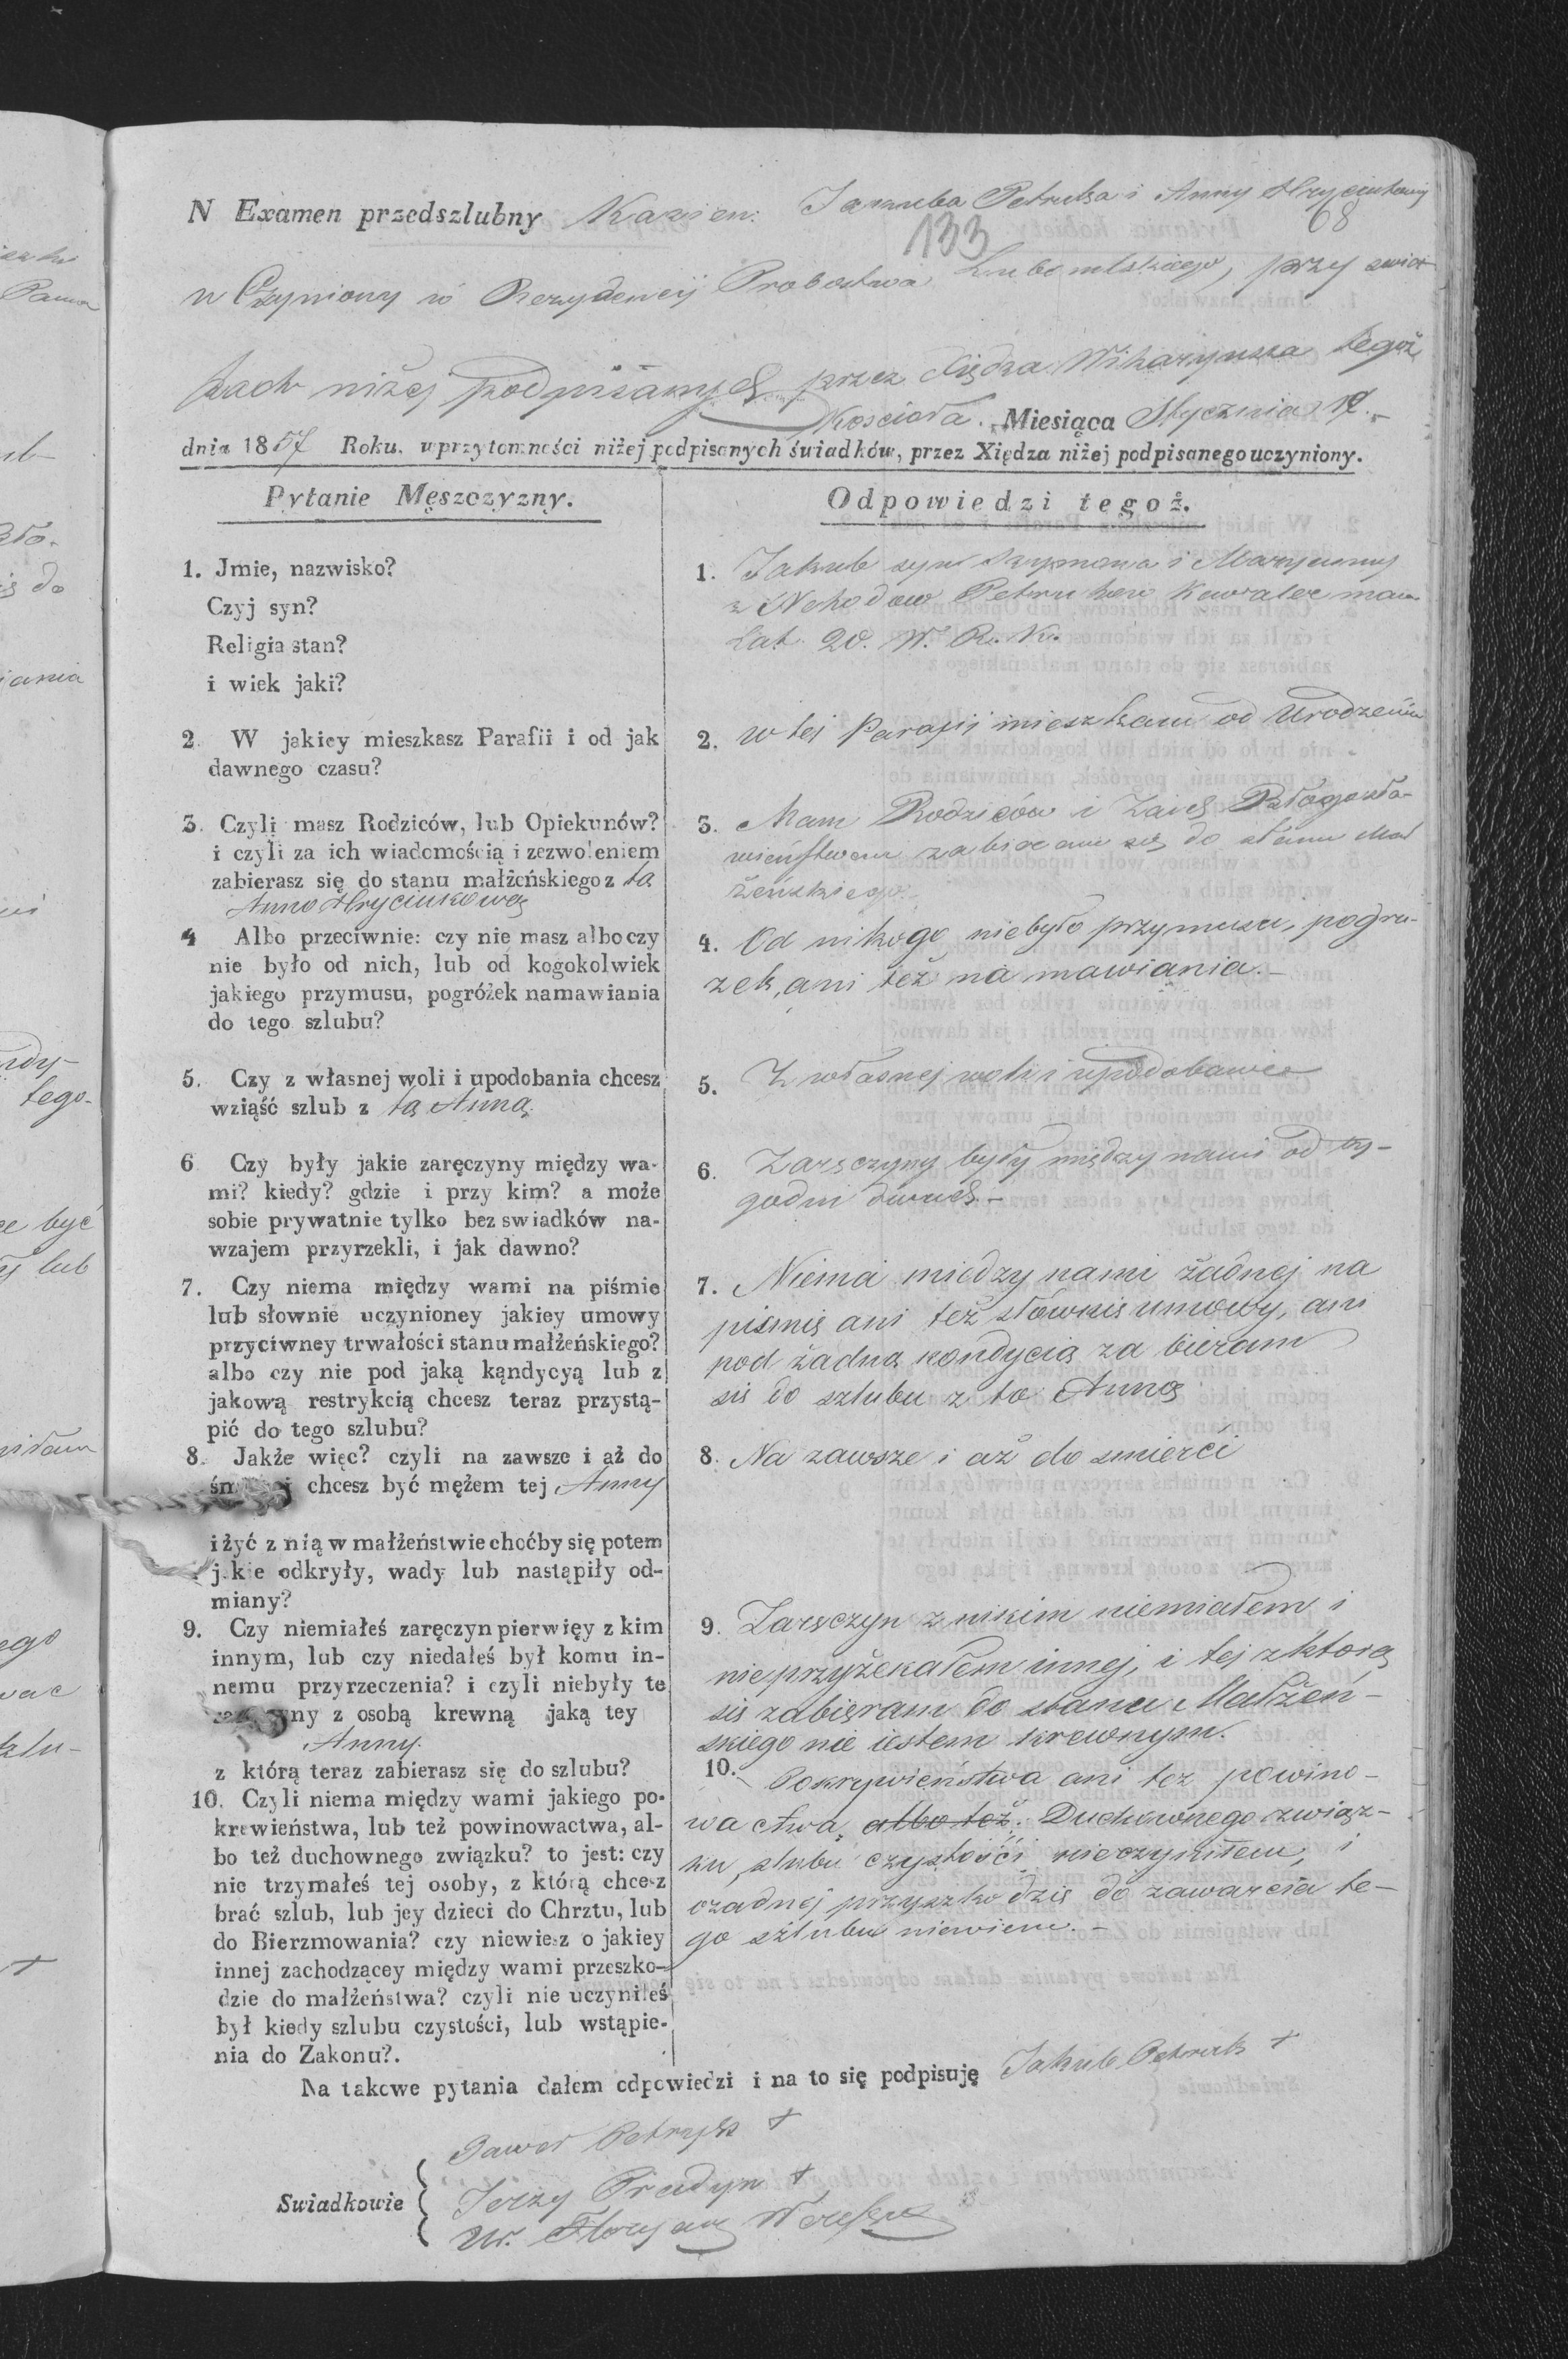 N Examen przedszlubny Kawien: Jakuba Petruka i Anny Hryciukowey
133 68
uczyniony w Rezydencij Probostwa Lubomlskiego, przy swiad-
kach niżej podpisanych przez Xiędza Wikaryusza tegoż
Kościoła. Miesiąca Stycznia 17.
dnia 1857 Roku. w przytomności niżej podpisanych świadków, przez Xiędza niżej podpisanego uczyniony.
Pytanie Męszczyzny.
1. Jmie, nazwisko?
Czyj syn?
Religia stan?
i wiek jaki?
2. W jakiey mieszkasz Parafii i od jak
dawnego czasu?
3. Czyli masz Rodziców, lub Opiekunów?
i czyli za ich wiadomością i zezwoleniem
zabierasz się do stanu małżeńskiego z tą
Anną Hryciukową
4 Albo przeciwnie: czy nie masz albo czy
nie było od nich, lub od kogokolwiek
jakiego przymusu, pogróżek namawiania
do tego szlubu?
5. Czy z własnej woli i upodobania chcesz
wziąść szlub z tą Anną.
6 Czy były jakie zaręczyny między wa-
mi? kiedy? gdzie i przy kim? a może
sobie prywatnie tylko bez swiadków na-
wzajem przyrzekli, i jak dawno?
7. Czy niema między wami na piśmie
lub słownie uczynioney jakiey umowy
przyciwney trwałości stanu małżeńskiego?
albo czy nie pod jaką kądycyą lub z
jakową restrykcią chcesz teraz przystą-
pić do tego szlubu?
8. Jakże więc? czyli na zawsze i aż do
chcesz być mężem tej Anny
i żyć z nią w małżeństwie choćby się potem
j.kie odkryły, wady lub nastąpiły od-
miany?
9. Czy niemiałeś zaręczyn pierwięy z kim
innym, lub czy niedałeś był komu in-
nemu przyrzeczenia? i czyli niebyły te
z osobą krewną jaką tey
Anny.
z którą teraz zabierasz się do szlubu?
10. Czyli niema między wami jakiego po-
krewieństwa, lub też powinowactwa, al-
bo też duchownego związku? to jest: czy
nie trzymałeś tej osoby, z którą chcesz
brać szlub, lub jey dzieci do Chrztu, lub
do Bierzmowania? czy niewiesz o jakiey
innej zachodzącey między wami przeszko-
dzie do małżeństwa? czyli nie uczyniłeś
był kiedy szlubu czystości, lub wstąpie-
nia do Zakonu?.
Odpowiedzi tegoż.
1. Jakub syn Szymona i Maryanny
z Petruków Kawaler mam
Lat 20. W. R. K.
2. w tej Parafii mieszkam od Urodzenia
3. Mam Rodziców i Zaich Błogosła-
wieństwem zabieram się do stanu Mał
żeńskiego.
4. Od nikogo niebyło przymusu, pogru-
żek, ani też na mawiania.-
5. Z własnej woli i upodobania
6. Zaręczyny były między nami od ty-
godni dwuch.-
7. Niema miedzy nami żadnej na
piśmie ani też słównie umowy, ani
pod żadną kondycią za bieram
się do szlubu z tą Anną
8. Na zawsze i aż do smierći
9. Zaręczyn z nikim niemiałem i
nieprzyżekałem innej, i tej zktorą
się zabieram do stanu Małżeń-
skiego nie iestem krewnym.
10. Pokrywieństwa ani też powino-
wactwa, albo też Duchownego związ-
ku, slubu czystośći nieczyniłem, i
ożadnej przyszkodzie do zawarcia te-
go szlubu niewiem.-
Na takowe pytania dałem odpowiedzi i na to się podpisuję Jakub Petruk +
Swiadkowie
Paweł Petryk +
Jerzy Pradyn +